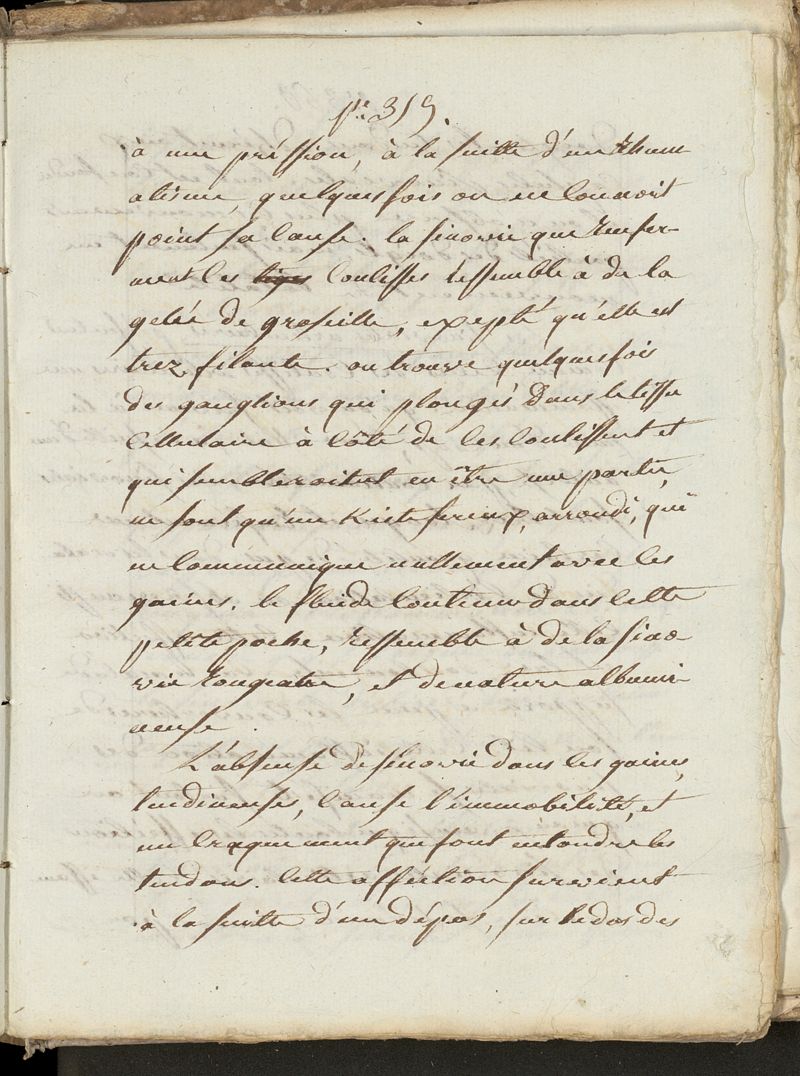 pe. 319.
à une préssion, à la suitte d'un rhum
atisme, quelques fois on ne connoit
point sa cause. la sinovie que renfer-
ment les tiges coulisses ressemble à de la
gelée de groseille, exepté qu'elle est
trez filante. on trouve quelques fois
des ganglions qui plongés dans le tissu
cellulaire à côté de ces coulissent et
qui sembleroitent en être une partie,
ne sont qu'un kiste sereux, arrondi, qui
ne communique nullement avec les
gaines. le fluide contenu dans cette
petite poche, ressemble à de la sino
vie rougeatre, et de nature albumi
neuse.
L'absense de sinovie dans les gaines
tendineuses, cause l'immobilité, et
un craquement que font entendre les
tendons. cette affection survient
à la suitte d'un dépos, sur le dos des